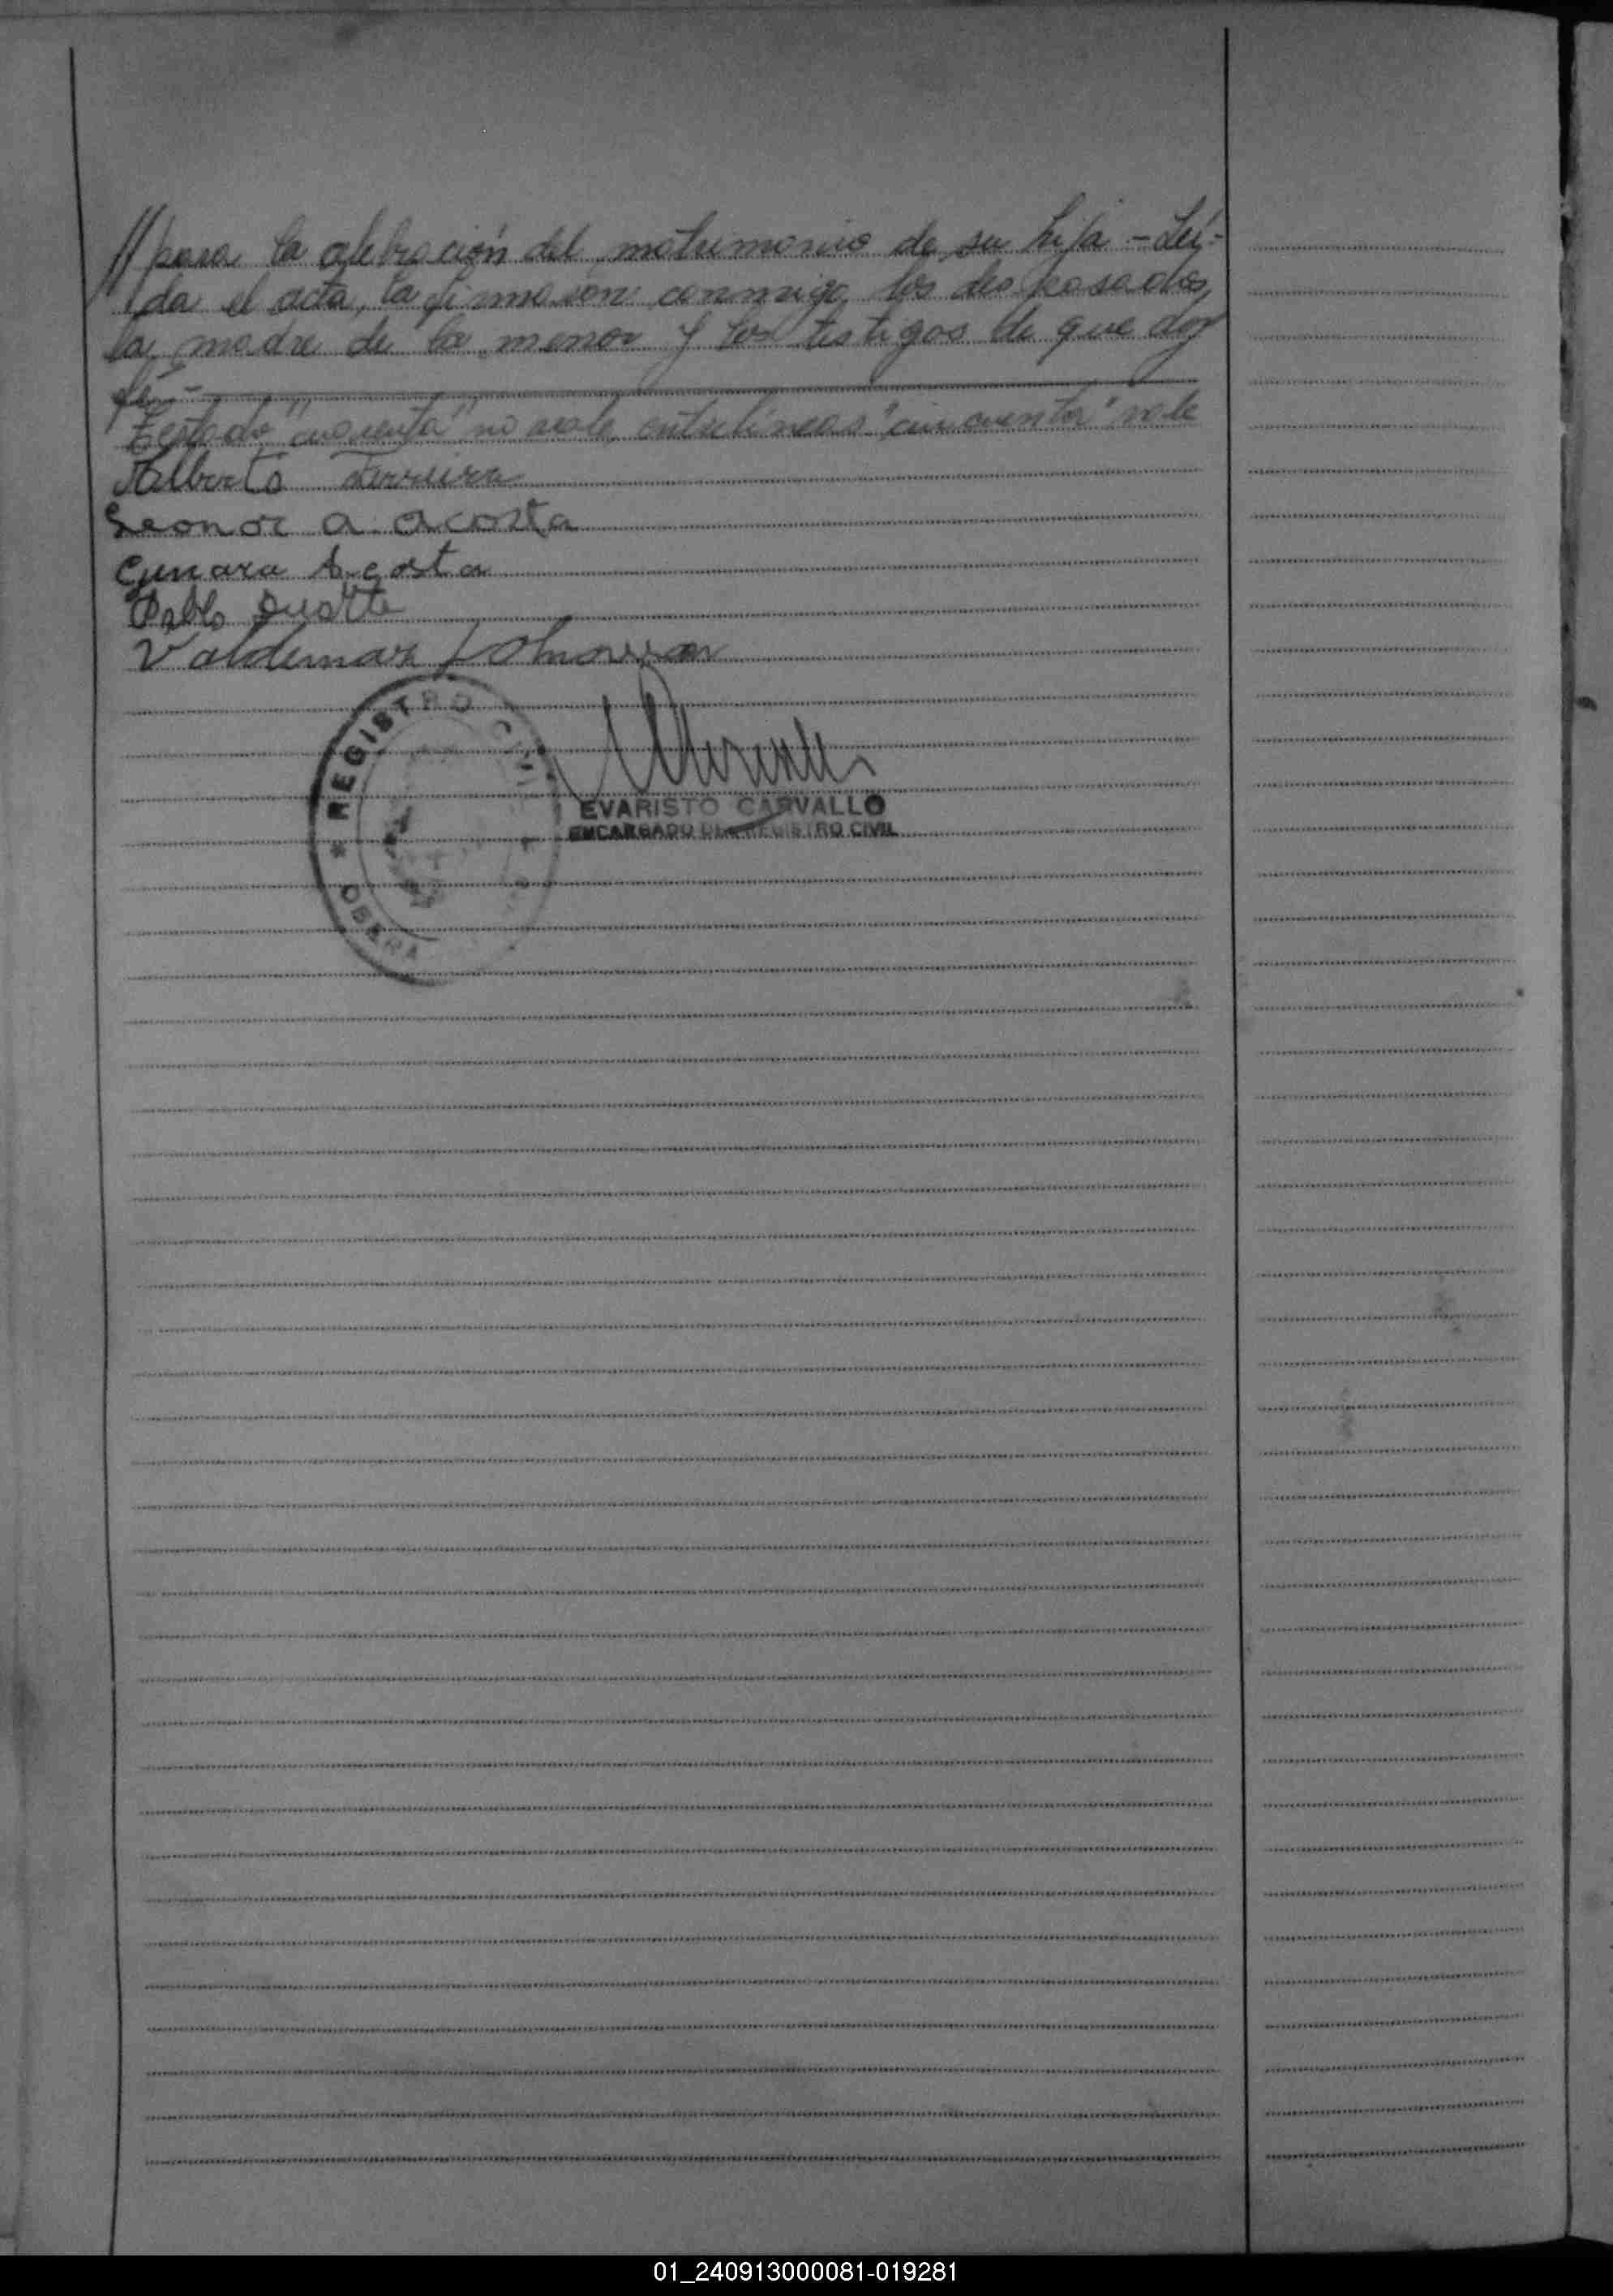 // para la celebración del matrimonio de su hija - Leí-
da el acta, la firmaron conmigo los desposados,
la madre de la menor y los testigos de que doy
fé.-
Testado "cuarenta" no vale, entrelíneas "cincuenta" vale
Alberto Ferreira
Leonor a. acosta
Genara Acosta
Pablo Duarte
Valdemar
REGISTRO CIVIL
OBERA
EVARISTO CARVALLO
ENCARGADO DEL REGISTRO CIVIL
01_240913000081-019281